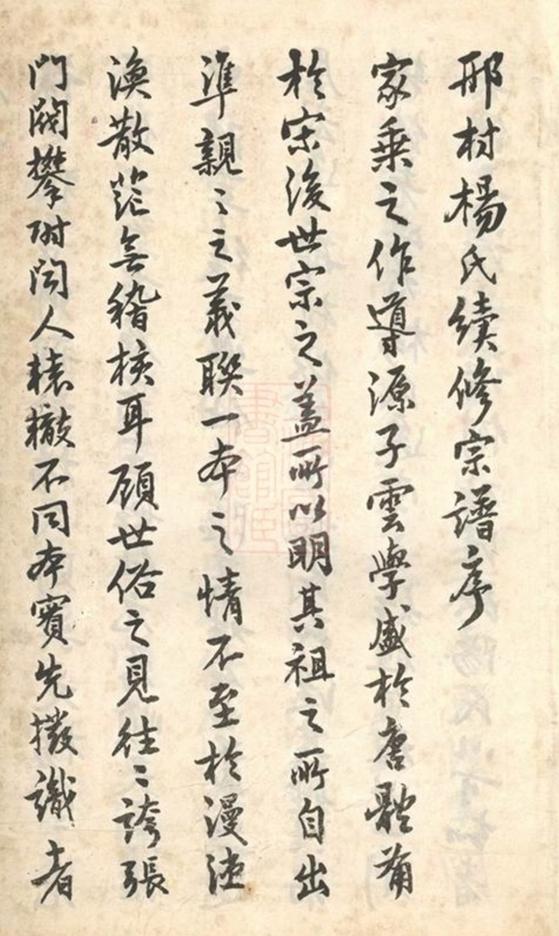 邢村楊氏續修宗譜序
家乘之作導源子雲學盛於唐體備
於宋後世宗之蓋所以明其祖之所自出
準親〻之義聯一本之情不至於漫
渙散茫無稽核耳顧世俗之見往〻誇張
門閥攀附聞人轅轍不同本實先撥識者